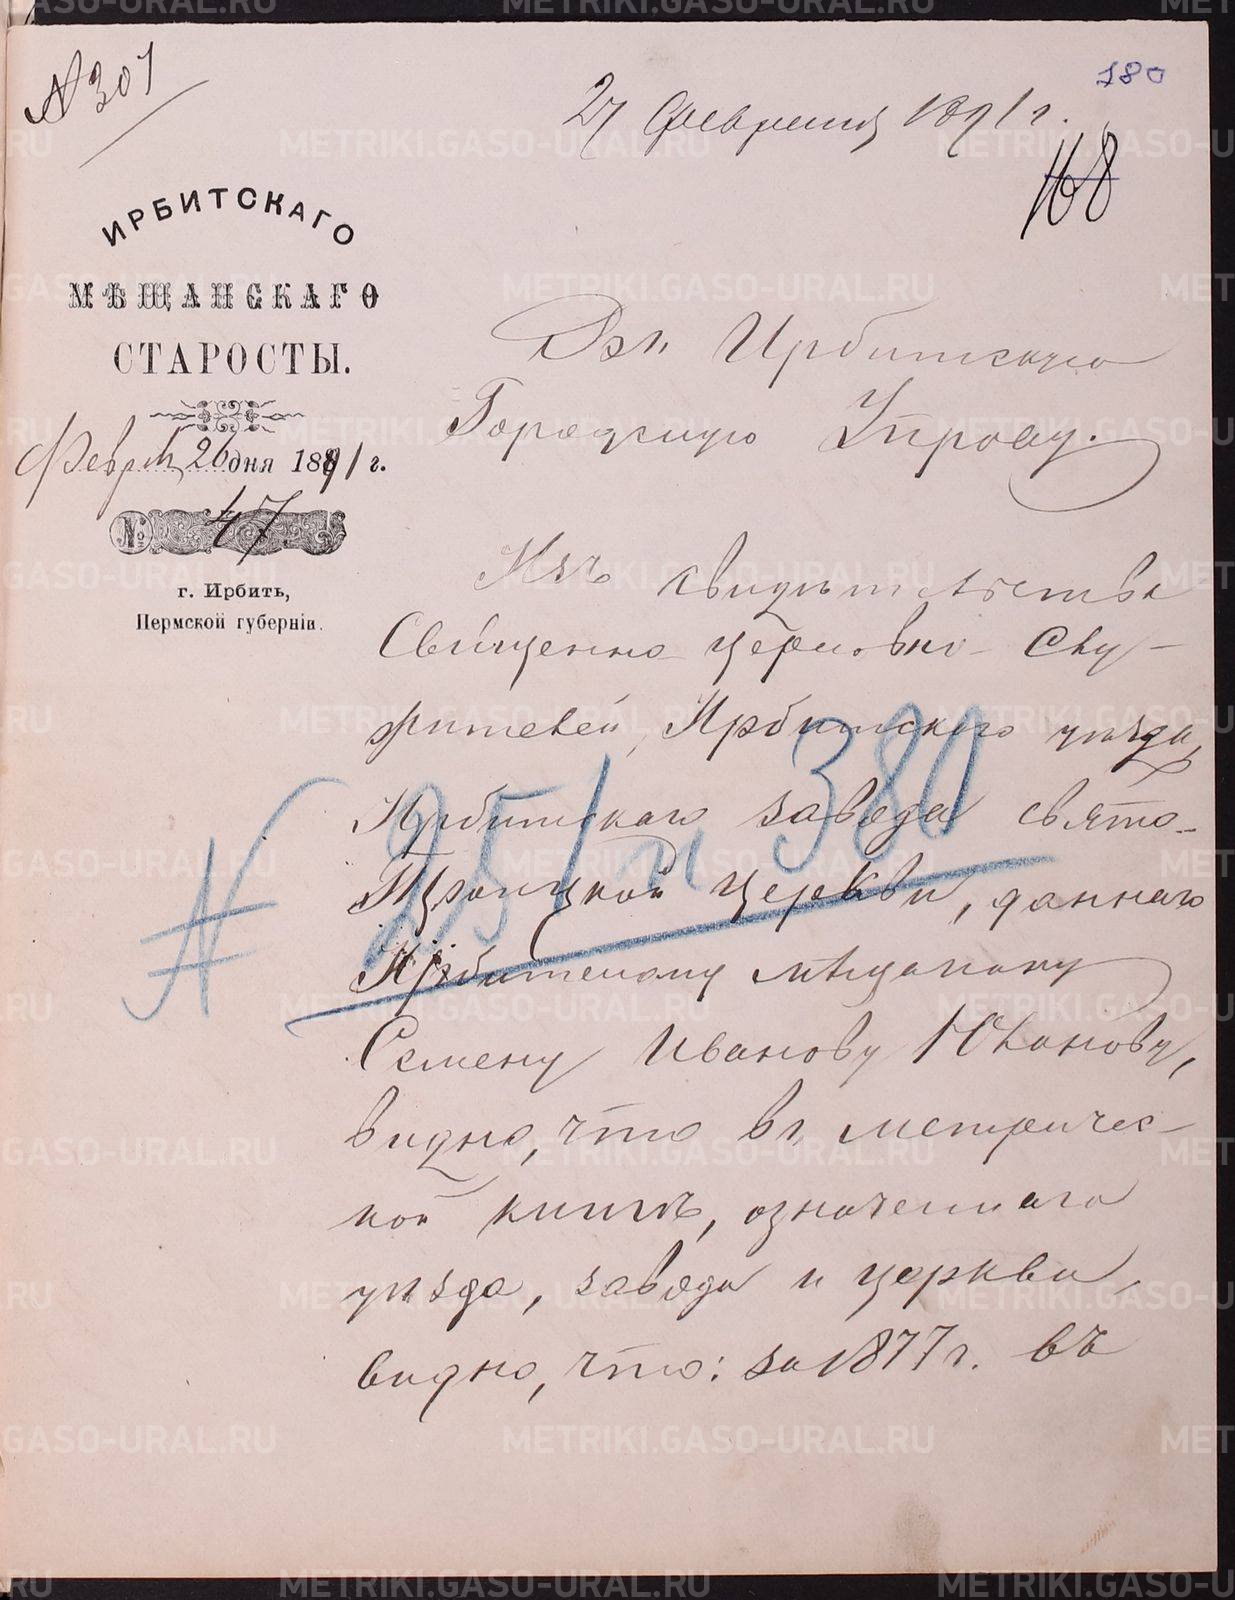 № 301
180
27 Февраля 1891 г.
168
ИРБИТСКАГО
МѢЩАНСКАГО
СТАРОСТЫ.
Февраля 26 дня 1891 г.
№ 47
г. Ирбить,
Пермской губерніи.
Въ Ирбитскую
Городскую Управу.
Изъ свидѣтельства
Священно-церковно-слу-
жителей, Ирбитского уѣзда,
Ирбитскаго завода свято-
Троицкой церкви, даннаго
Ирбитскому мѣщанину
Семену Иванову Юланову,
видно, что въ метричес-
кой книгѣ, означеннаго
уѣзда, завода и церкви,
видно, что: за 1877 г. въ
№ 251 и 380
METRIKI.GASO-URAL.RU